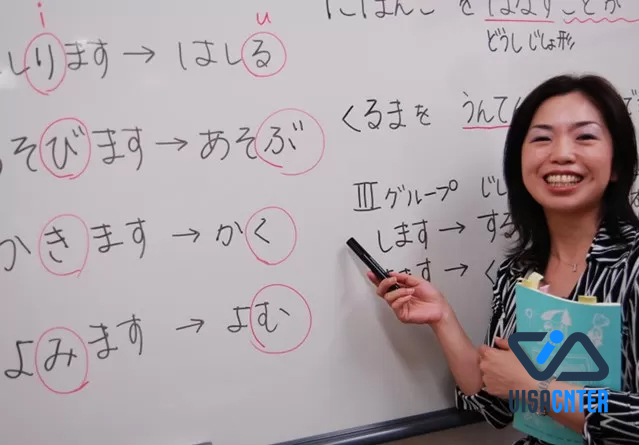 i u
しります → はしる
そびます → あそぶ
かきます → かく
よみます → よむ
にほんごを はなす ことが
どうし じしょ形
くるまを うんてん
Ⅲグループ じし
します → する
ます → く
VISACNTER